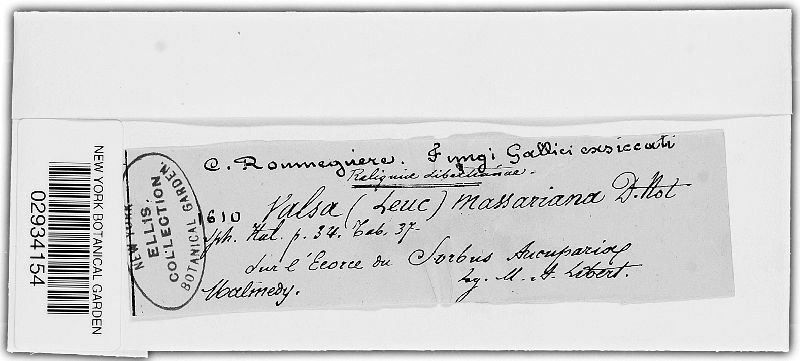 C. Roumeguère. Fungi Gallici exsiccati
Reliquiæ Libertianæ.
1610 Valsa (Leuc) Massariana D.Not
Sph. Ital. p. 34. Tab. 37-
Sur l'Ecorce du Sorbus Aucuparia
Malmedy.
Leg. M. A. Libert.
NEW YORK
BOTANICAL GARDEN.
ELLIS
COLLECTION
NEW YORK BOTANICAL GARDEN
02934154